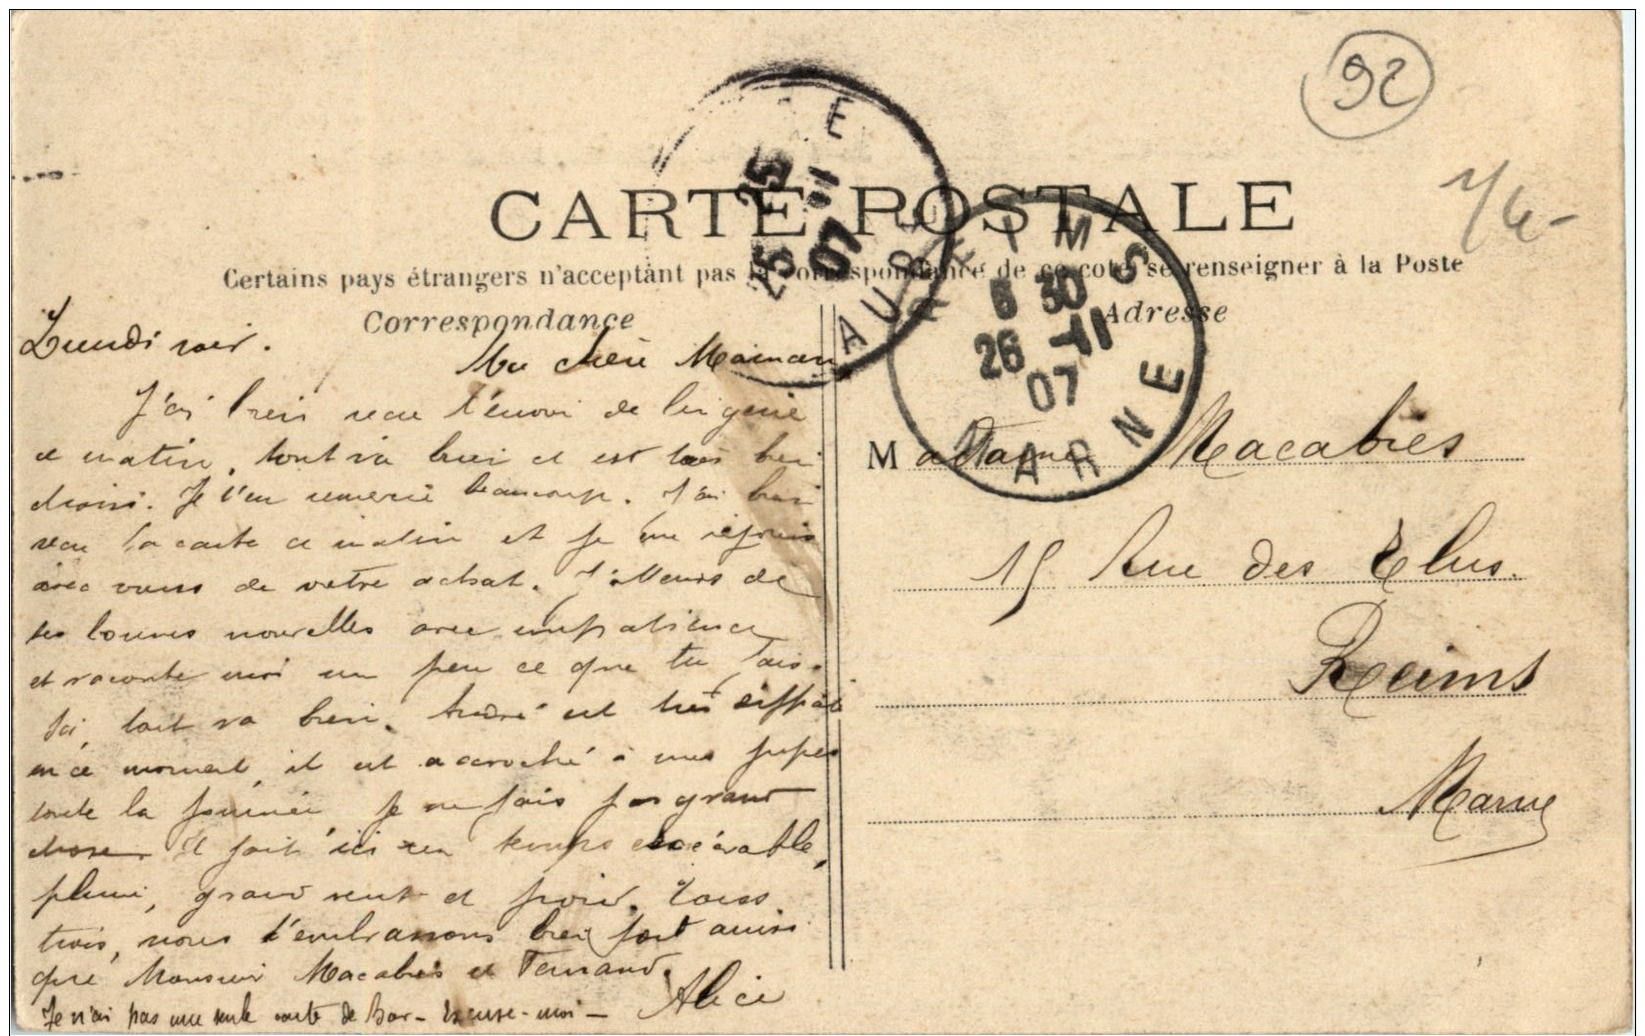 92
1/6-
CARTE POSTALE
Certains pays étrangers n'acceptant pas la correspondance de ce coté, se renseigner à la Poste
Correspondance
Adresse
E
25 25
11
07
AUBE
REIMS
8 30
26 -11
07
MARNE
Lundi soir.
Ma chère Maman
J'ai bien reçu l'envoi de lingerie
ce matin, tout va bien et est très bien
choisi. Je t'en remercie beaucoup. J'ai bien
reçu ta carte ce matin et je me réjouis
avec vous de votre achat. J'attends de
tes bonnes nouvelles avec impatience
et raconte moi un peu ce que tu fais.
Ici, tout va bien. André est très difficile
en ce moment, il est accroché à mes jupes
toute la journée je ne fais pas grand
chose. Il fait ici un temps exécrable,
pluie, grand vent et froid. Tous
trois, nous t'embrassons bien fort ainsi
que Monsieur Macabies et Fernand.
Alice
Je n'ai pas une seule carte de Bar- Excuse-moi-
Madame Macabies
15 Rue des Elus.
Reims
Marne